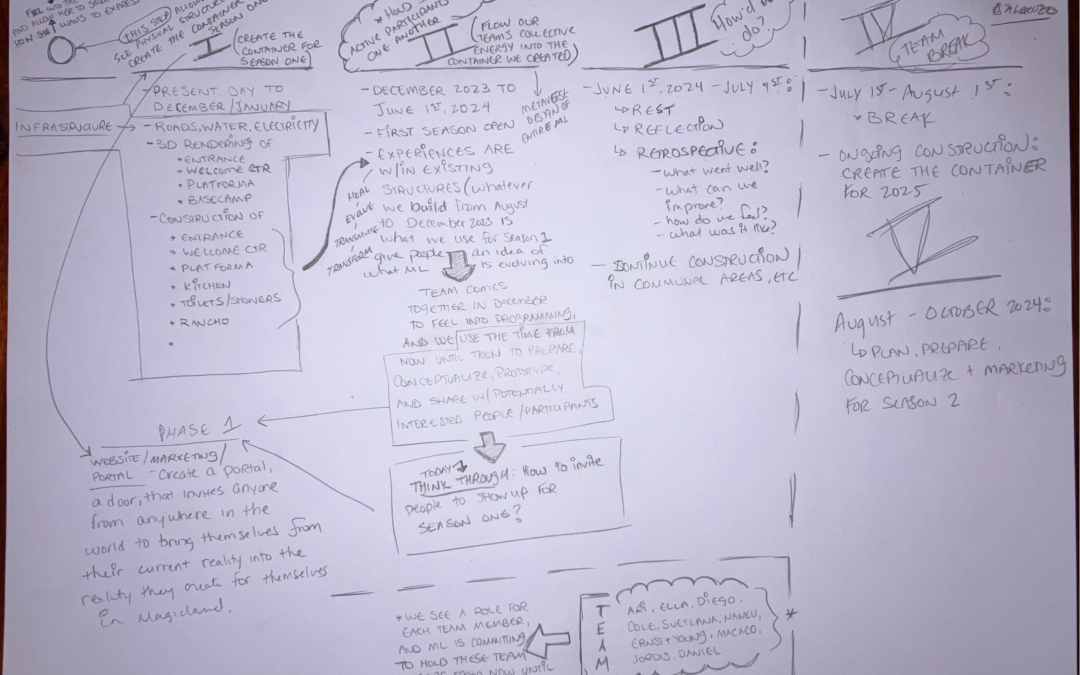 FEEL INTO THE
AND ALLOW HER TO
HOW SHE WANTS TO EXPRESS
THIS STEP ALLOWS
PHYSICAL STRUCTURE
CREATE THE CONTAINER
SEASON ONE
I
(CREATE THE
CONTAINER FOR
SEASON ONE)
- PRESENT DAY TO
DECEMBER/JANUARY
INFRASTRUCTURE
- ROADS, WATER, ELECTRICITY
- 3D RENDERING OF
* ENTRANCE
* WELCOME CTR
* PLATFORMA
* BASECAMP
- CONSTRUCTION OF
* ENTRANCE
* WELCOME CTR
* PLATFORMA
* KITCHEN
* TOILETS/SHOWERS
* RANCHO
* HOLD
ACTIVE PARTICIPANTS
ONE ANOTHER
II
(FLOW OUR
TEAM'S COLLECTIVE
ENERGY INTO THE
CONTAINER WE CREATED)
METAVERSE
OF
ENTIRE ML
- DECEMBER 2023 TO
JUNE 1ST, 2024
- FIRST SEASON OPEN
- EXPERIENCES ARE
W/IN EXISTING
STRUCTURES (whatever
we build from August
to December 2023 is
what we use for Season 1
give people an idea of
what ML is evolving into
HEAL
EVOLVE
TRANSMUTE
TRANSFORM
TEAM COMES
TOGETHER IN DECEMBER
TO FEEL INTO PROGRAMMING,
AND WE USE THE TIME FROM
NOW UNTIL THEN TO PREPARE,
CONCEPTUALIZE, PROTOTYPE,
AND SHARE W/ POTENTIALLY
INTERESTED PEOPLE/PARTICIPANTS
TODAY
THINK THROUGH: How to invite
people to show up for
SEASON ONE?
PHASE 1
WEBSITE/MARKETING/
PORTAL - Create a portal,
a door, that invites anyone
from anywhere in the
world to bring themselves from
their current reality into the
reality they create for themselves
in Magicland.
III
How'd we
do?
- JUNE 1ST, 2024 - JULY 1ST:
↳ REST
↳ REFLECTION
↳ RETROSPECTIVE:
- what went well?
- what can we
improve?
- how do we feel?
- what was it like?
- CONTINUE CONSTRUCTION
IN COMMUNAL AREAS, ETC
IV
TEAM
BREAK
- JULY 1ST - AUGUST 1ST:
* BREAK
- ONGOING CONSTRUCTION:
CREATE THE CONTAINER
FOR 2025
V
AUGUST - OCTOBER 2024:
↳ PLAN, PREPARE,
CONCEPTUALIZE + MARKETING
FOR SEASON 2
* WE SEE A ROLE FOR
EACH TEAM MEMBER,
AND ML IS COMMITTING
TO HOLD THESE TEAM
FROM NOW UNTIL
TEAM
ARI, ELLA, DIEGO,
COLE, SVETLANA, NANKU,
ERNST + YOUNG, MACACO,
JORDIS, DANIEL
*